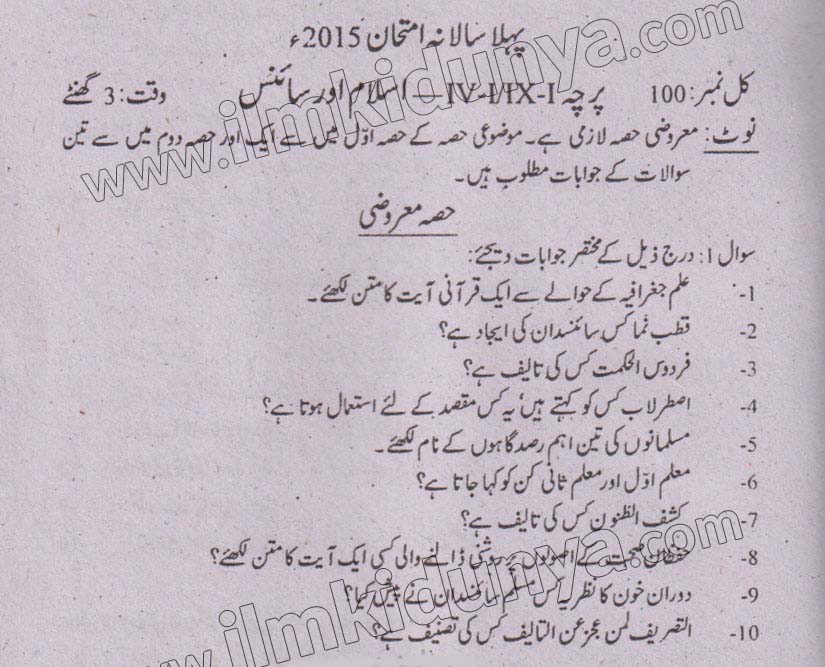 پہلا سالانہ امتحان 2015ء
کل نمبر: 100 پرچہ IV-I/IX-I — اسلام اور سائنس وقت: 3 گھنٹے
نوٹ: معروضی حصہ لازمی ہے۔ موضوعی حصہ کے حصہ اوّل میں سے ایک اور حصہ دوم میں سے تین
سوالات کے جوابات مطلوب ہیں۔
حصہ معروضی
سوال 1: درج ذیل کے مختصر جوابات دیجئے:
1- علم جغرافیہ کے حوالے سے ایک قرآنی آیت کا متن لکھئے۔
2- قطب نما کس سائنسدان کی ایجاد ہے؟
3- فردوس الحکمت کس کی تالیف ہے؟
4- اصطرلاب کس کو کہتے ہیں، یہ کس مقصد کے لئے استعمال ہوتا ہے؟
5- مسلمانوں کی تین اہم رصدگاہوں کے نام لکھئے۔
6- معلم اوّل اور معلم ثانی کن کو کہا جاتا ہے؟
7- کشف الظنون کس کی تالیف ہے؟
8- حفظان صحت کے اصولوں پر روشنی ڈالنے والی کسی ایک آیت کا متن لکھئے؟
9- دوران خون کا نظریہ کس مسلم سائنسدان نے پیش کیا؟
10- التصریف لمن عجز عن التالیف کس کی تصنیف ہے؟
www.ilmkidunya.com
www.ilmkidunya.com